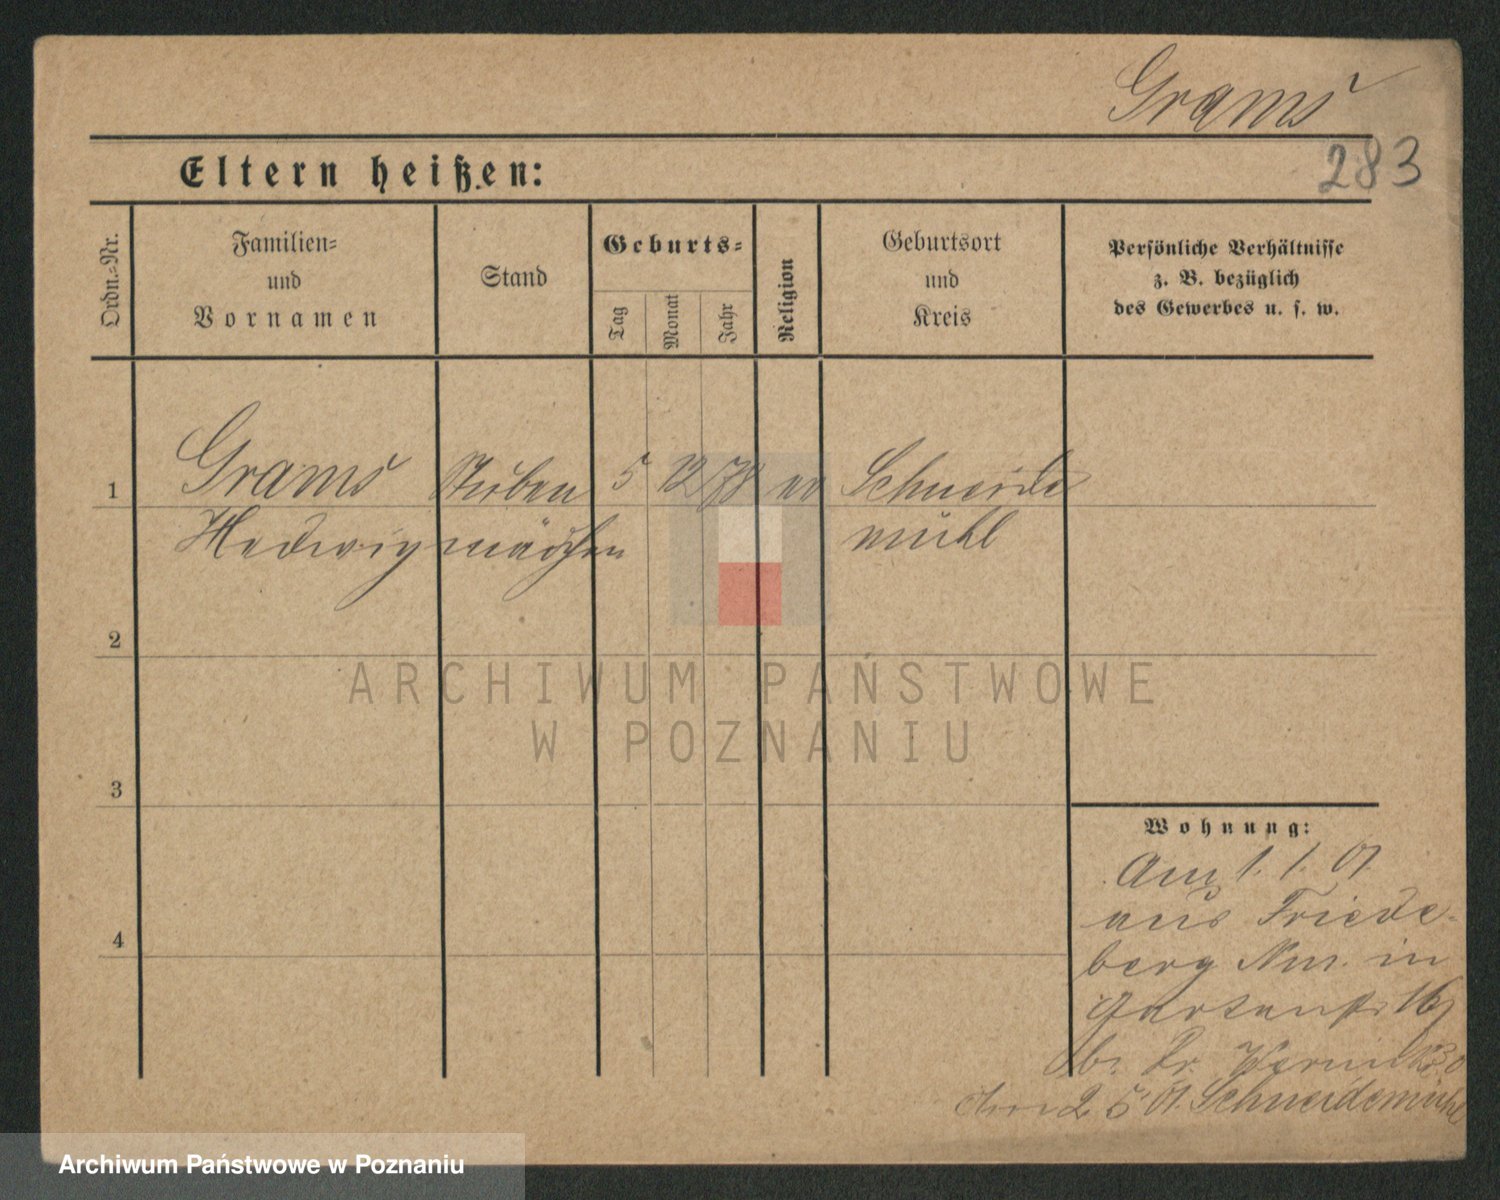 Grams
283
Eltern heißen:
Ordn.-Nr.
Familien-
und
Vornamen
Stand
Geburts-
Tag
Monat
Jahr
Religion
Geburtsort
und
Kreis
Persönliche Verhältnisse
z. B. bezüglich
des Gewerbes u. s. w.
1 Grams Stuben 5 12 78 ev Schneide
Hedwig mädchen mühl
2
3
4
Wohnung:
Am 1. 1. 01
aus Friede-
berg Nm. in
Gartenstr 16
b. Dr.
2 5 01. Schneidemühl
ARCHIWUM PAŃSTWOWE
W POZNANIU
Archiwum Państwowe w Poznaniu